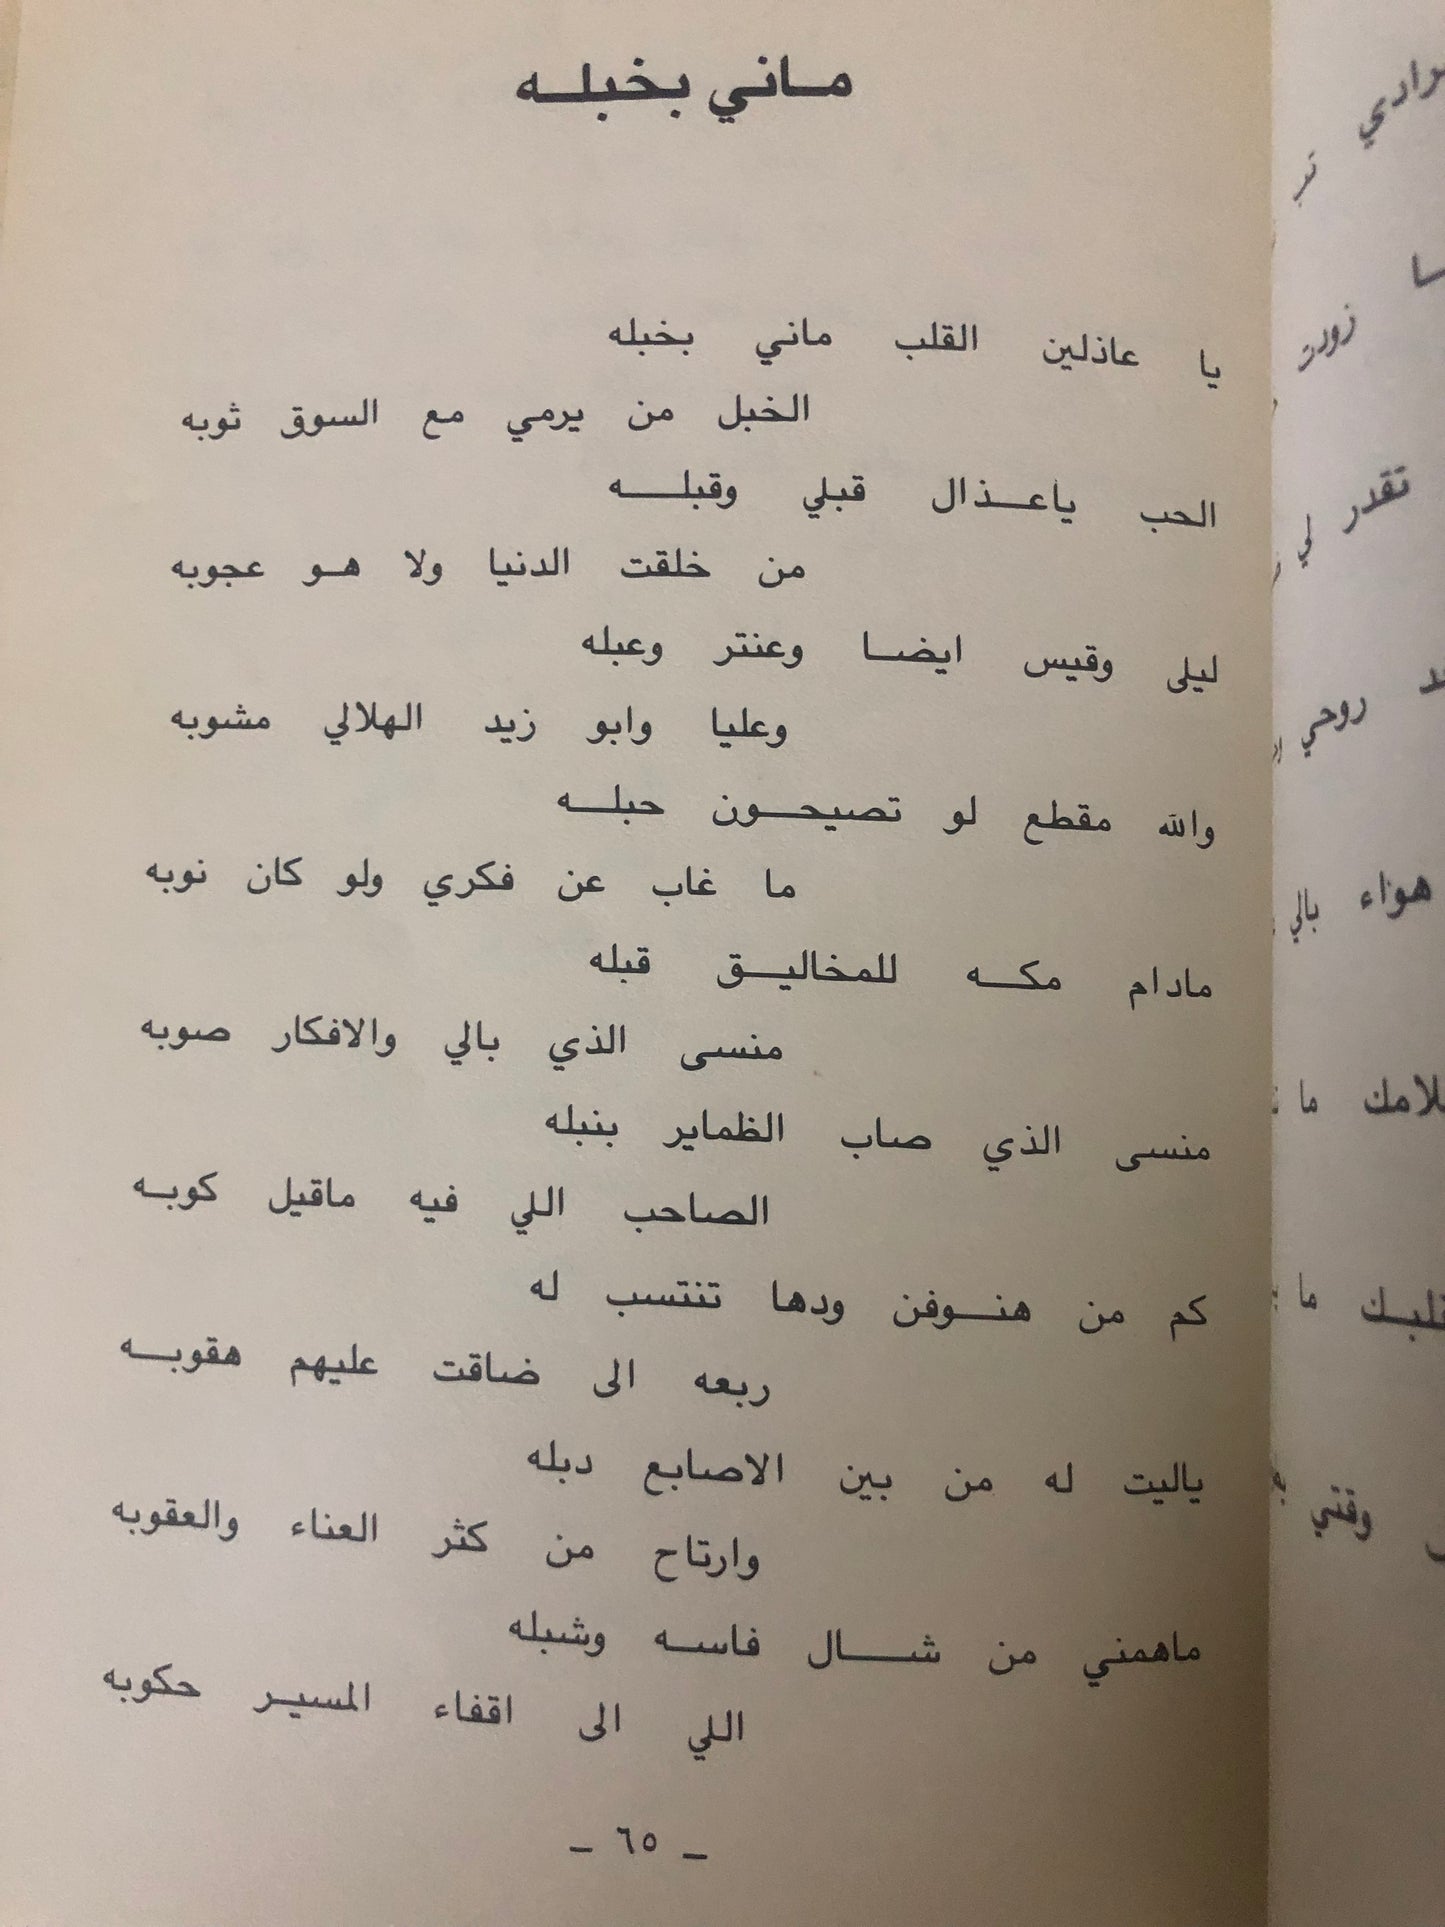 ماني بخبله
يا عاذلين القلب ماني بخبله
الخبل من يرمي مع السوق ثوبه
الحب ياعذال قبلي وقبله
من خلقت الدنيا ولا هو عجوبه
ليلى وقيس ايضا وعنتر وعبله
وعليا وابو زيد الهلالي مشوبه
والله مقطع لو تصيحون حبله
ما غاب عن فكري ولو كان نوبه
مادام مكه للمخاليق قبله
منسى الذي بالي والافكار صوبه
منسى الذي صاب الظماير بنبله
الصاحب اللي فيه ماقيل كوبه
كم من هنوفن ودها تنتسب له
ربعه الى ضاقت عليهم هقوبه
ياليت له من بين الاصابع دبله
وارتاح من كثر العناء والعقوبه
ماهمني من شال فاسه وشبله
اللي الى اقفاء المسير حكوبه
ـ ٦٥ ـ
تقدر لي
روحي
هواء بالي
ما
ما
وقتي